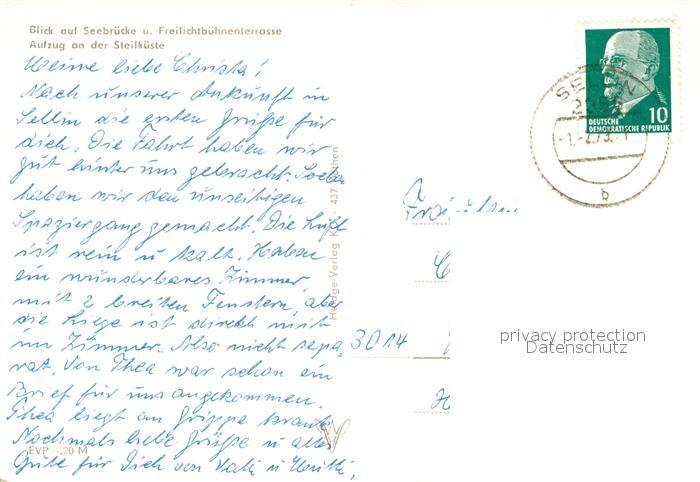 Blick auf Seebrücke u. Freilichtbühnenterrasse
Aufzug an der Steilküste
Meine liebe Christa!
Nach unserer Ankunft in
Sellin die ersten Grüße für
dich. Die Fahrt haben wir
gut hinter uns gebracht. Soeben
haben wir den
Spaziergang gemacht. Die Luft
ist rein u kalt. Haben
ein wunderbares Zimmer
mit 2 breiten Fenstern, aber
die Liege ist direkt mit
im Zimmer. Also nicht sepa-
rat. Von Thea war schon ein
Brief für uns angekommen.
Thea liegt an Grippe krank.
Nochmals liebe Grüße u alles
Gute für Dich von Vati u Mutti.
EVP -,20 M
437
DEUTSCHE
DEMOKRATISCHE REPUBLIK
10
SELLIN
b
Fräulein
3014
privacy protection
Datenschutz